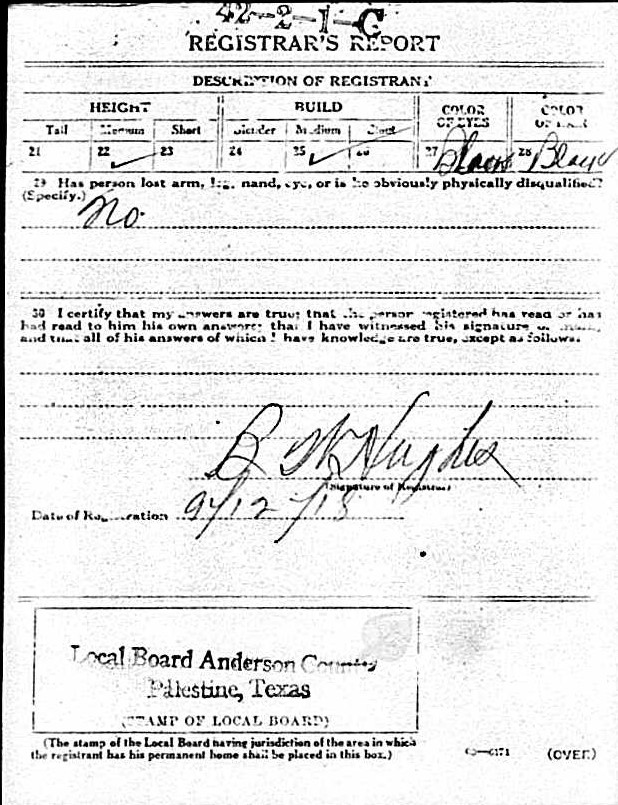 42-2-1-C
REGISTRAR'S REPORT
DESCRIPTION OF REGISTRANT
HEIGHT BUILD COLOR OF EYES COLOR OF HAIR
Tall Medium Short Slender Medium Stout
21 22 ✓ 23 24 25 ✓ 26 27 Black 28 Black
29 Has person lost arm, leg, hand, eye, or is he obviously physically disqualified?
(Specify.) No.
30 I certify that my answers are true; that the person registered has read or has
had read to him his own answers; that I have witnessed his signature or mark,
and that all of his answers of which I have knowledge are true, except as follows:
B W Hughes
(Signature of Registrar)
Date of Registration 9/12/18
Local Board Anderson County
Palestine, Texas
(STAMP OF LOCAL BOARD)
(The stamp of the Local Board having jurisdiction of the area in which
the registrant has his permanent home shall be placed in this box.)
(OVER)